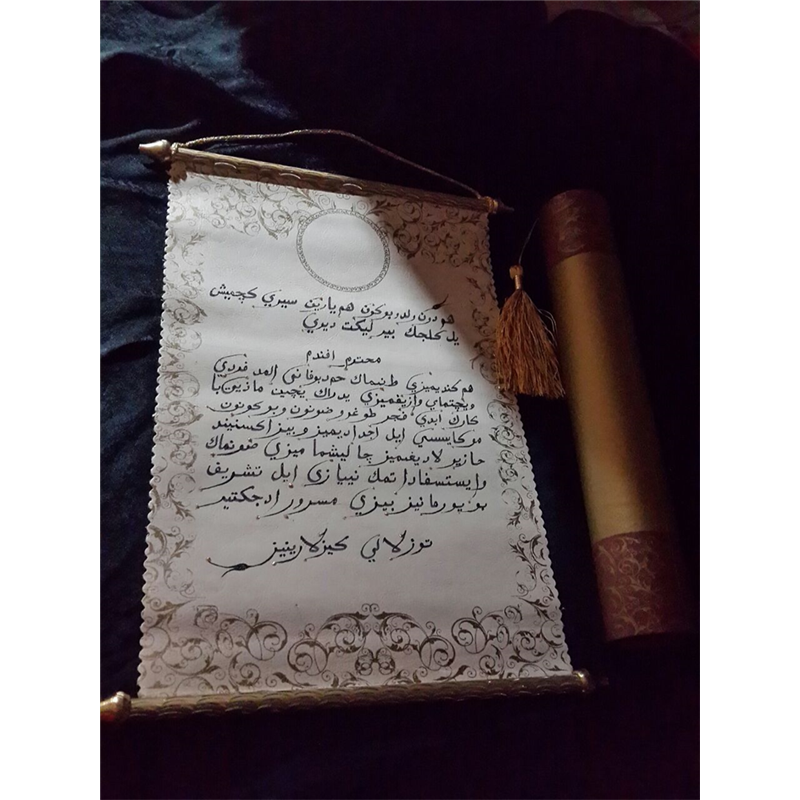 هم دون ولد بوكون هم يارين سيزي كچميش
يل كلجك بير ليكت ديدي
محترم افندم
هم كنديميزي طنيماك حم دبوفاني المد فوردي
ويجتماي وازيفميزي يدراك يچين مازين با
كارك ابدي فجر طوغرو ضونون وبوكونون
مركايسسي ايل اجداديميز وبيز اكسنيند
حازير لاديغيميز چاليشما ميزي ضونماك
وايستسفادا تمك نييازي ايل تشريف
بويورمانيز بيزي مسرور ادجكتير
توزلالي كيزلارينيز